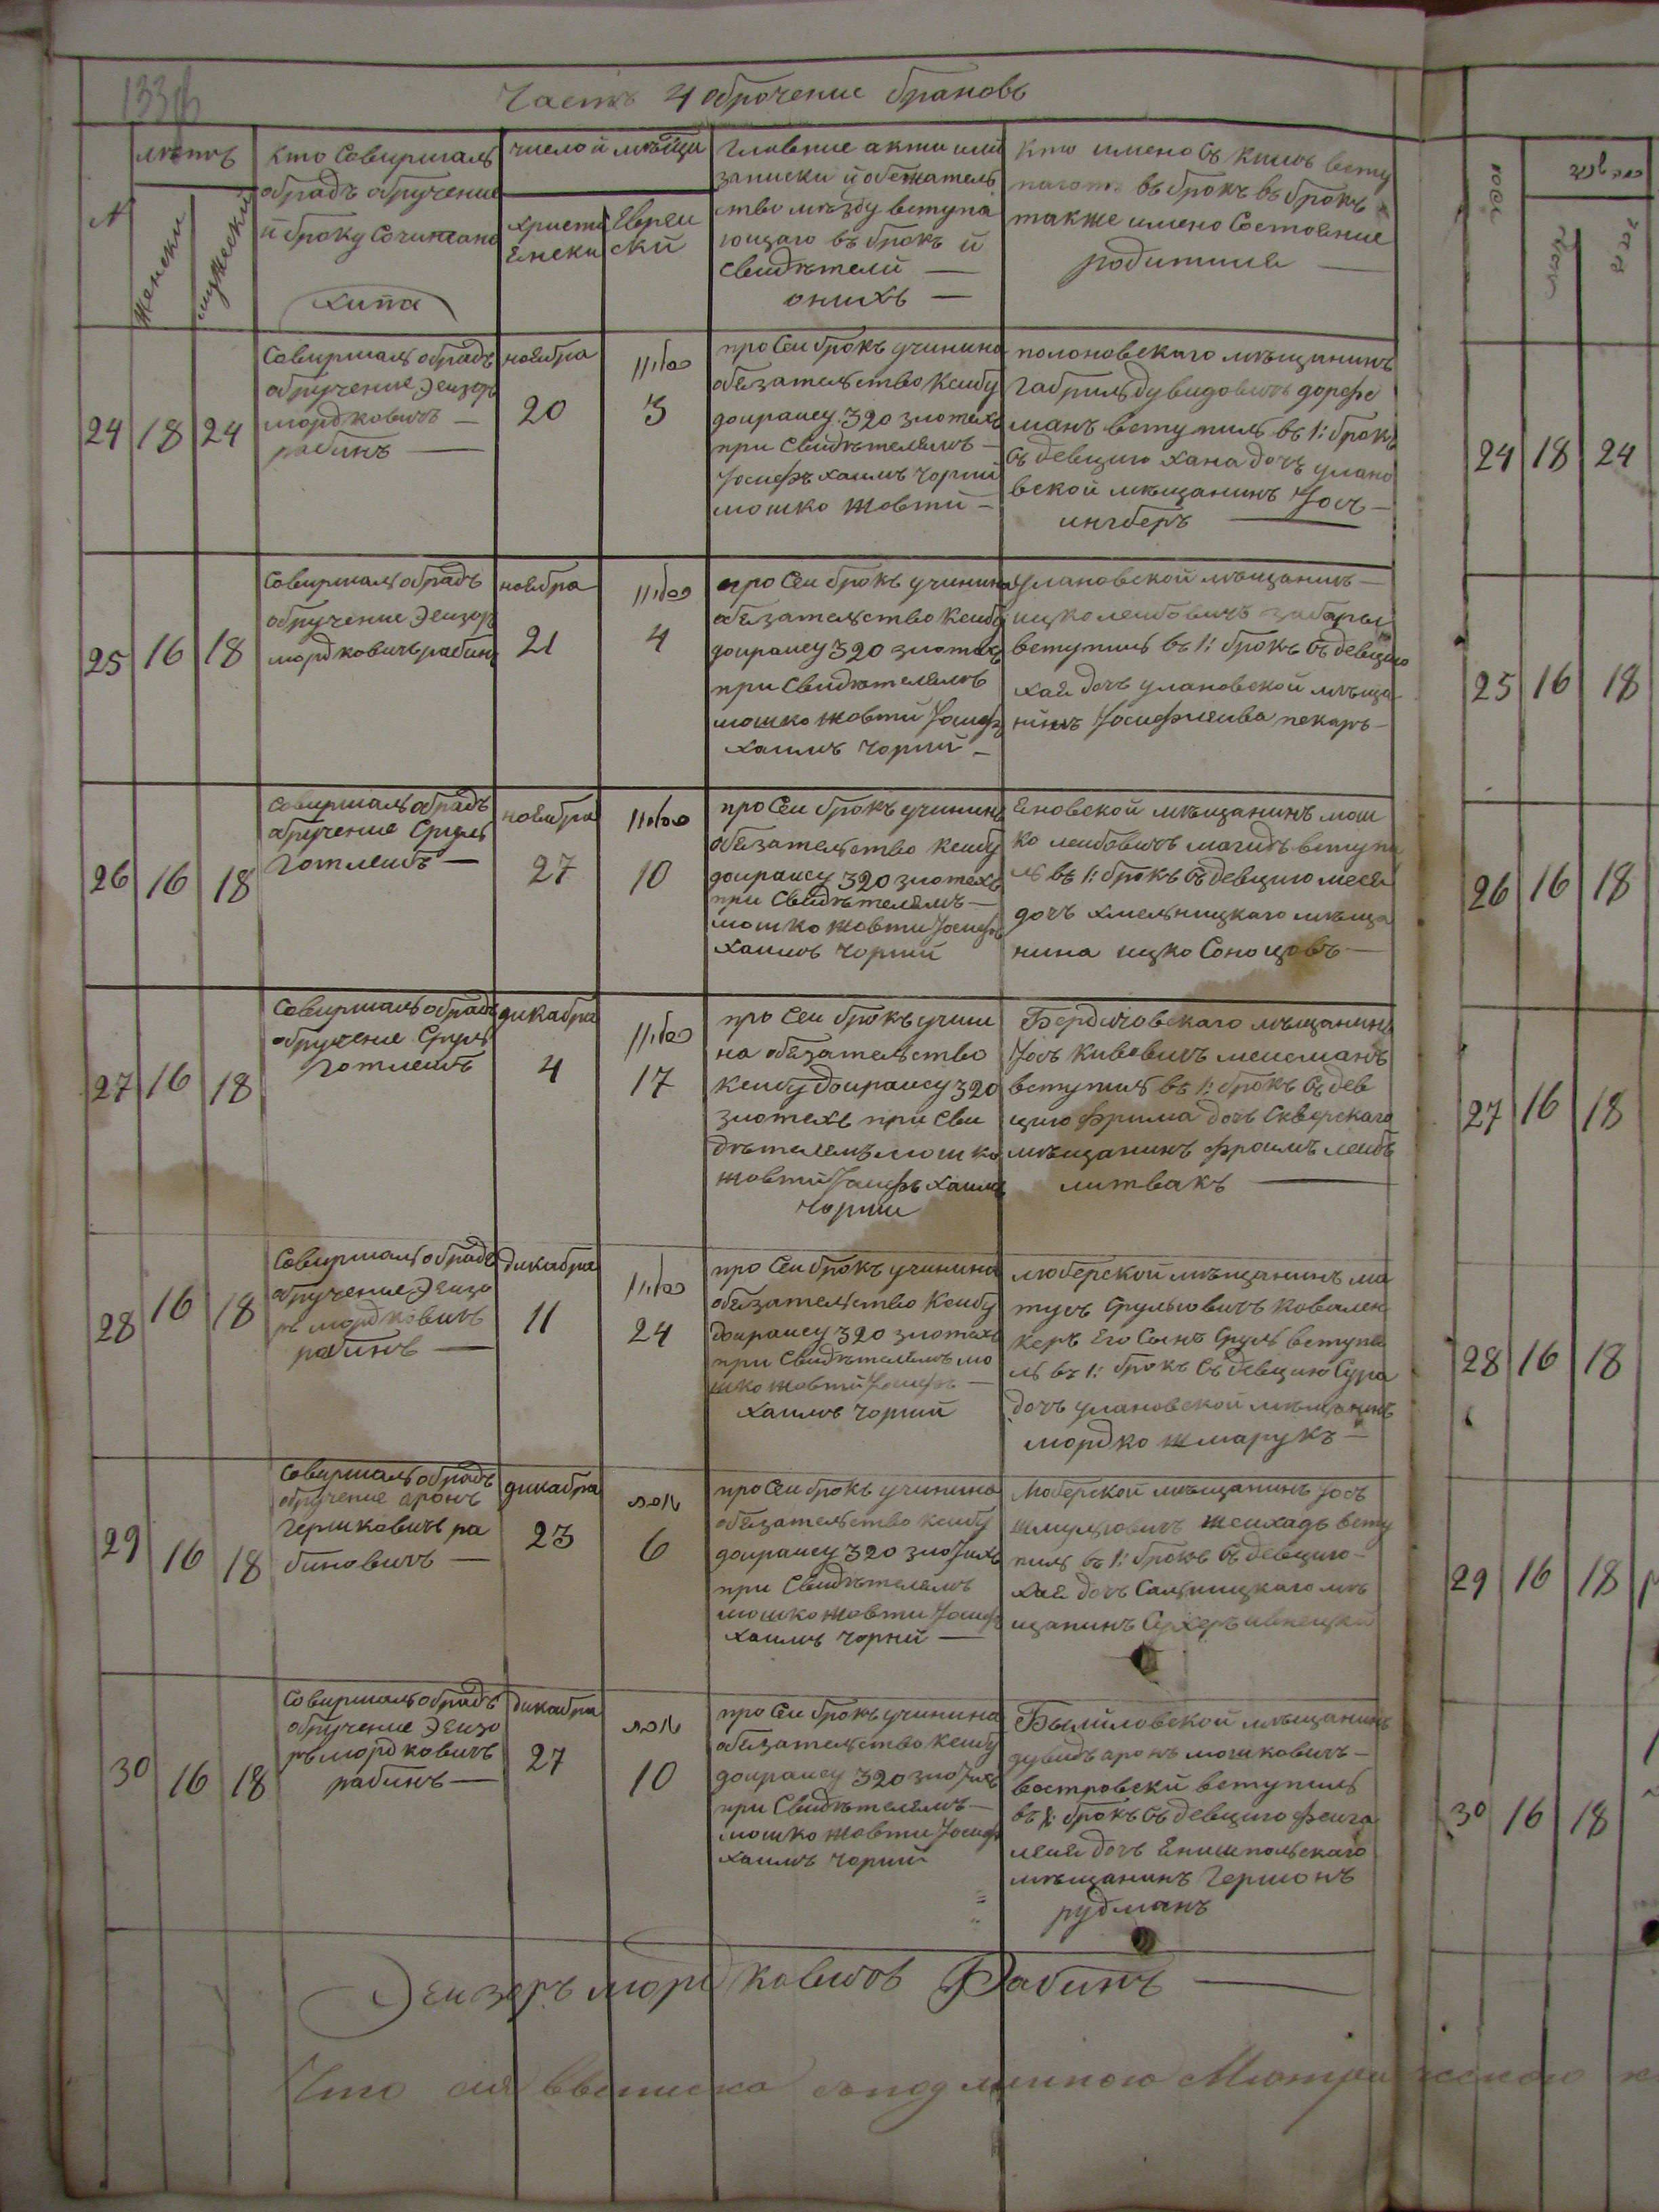 133
Часть 4 оброчение браковъ
№
летъ
женски
мужески
кто Совиршалъ
обрадъ обручение
й броку Сочитано
хипа
число й мѣсяц
Христи
Енски
Евреи
ский
главние акти или
записки й обезатель
ство мѣзду вступа
ющаго въ брокъ й
свидѣтели —
онихъ —
кто имено съ кимъ всту
паютъ въ брокъ въ брокъ
также имено Состояние
родители —
24
18
24
Совиршалъ обрадъ
обручение Эеизоръ
мордковичъ —
рабинъ —
ноебра
20
כסליו
3
про Сеи брокъ учинина
обезательство Ксибу
доираису 320 злотехъ
при Свидѣтелямъ —
Иосифъ хаимъ Чорний
мошко Жовтй —
полоновскаго мѣщанинъ
Габриль дувидовичъ дорфе
манъ вступилъ въ 1: брокъ
съ девицию хана дочъ улано
вской мѣщанинъ Иосъ —
ингберъ —
25
16
18
Совиршалъ обрадъ
обручение Эеизоръ
мордковичъ рабинъ
ноебра
21
כסליו
4
про Сеи брокъ учинина
обезательство Ксибу
доираису 320 злотехъ
при Свидѣтелямъ
мошко Жовтй Иосифъ
хаимъ Чорний —
Улановской мѣщанинъ —
ицко леибовичъ забары
вступилъ въ 1: брокъ съ девицию
хая дочъ улановской мѣща
нинъ Иосифлеива пекаръ —
26
16
18
Совиршалъ обрадъ
обручение Сруль
Готлеибъ —
ноебра
27
כסליו
10
про Сеи брокъ учинина
обезательство Ксибу
доираису 320 злотехъ
при Свидѣтелямъ —
мошко Жовти Иосифъ
хаимъ Чорний
Еновской мѣщанинъ мош
ко леибовичъ магидъ вступи
лъ въ 1: брокъ съ девицию меся
дочъ хмельницкаго мѣща
нина ицко Соноцовъ —
27
16
18
Совиршалъ обрадъ
обручение Сруль
Готлеибъ
дикабра
4
כסליו
17
про Сеи брокъ учини
на обезательство
Ксибу доираису 320
злотехъ при Сви
дѣтелямъ мошко
жовтй Иосифъ хаимъ
Чорни
Бердичовскаго мѣщанинъ
Иосъ кивовичъ меисманъ
вступилъ въ 1: брокъ съ дев
ицию фрима дочъ Скверскаго
мѣщанинъ Фроимъ леибъ
литвакъ —
28
16
18
Совиршалъ обрадъ
обручение Эеизо
ръ мордковичъ
рабинъ —
дикабра
11
כסליו
24
про Сеи брокъ учинина
обезательство Ксибу
доираису 320 злотехъ
при Свидѣтелямъ мо
шко жовтй Иосифъ —
хаимъ Чорний
люберской мѣщанинъ ма
тусъ Срулиовичъ Ковален
керъ Его Сынъ Сруль вступи
лъ въ 1: брокъ съ девицию Сура
дочъ улановской мѣщанинъ
мордко шмарукъ —
29
16
18
Совиршалъ обрадъ
обручение аронъ
гершковичъ ра
биновичъ —
дикабра
23
טבת
6
про Сеи брокъ учинина
обезательство Ксибу
доираису 320 злотихъ
при Свидѣтелямъ
мошко Жовти Иосифъ
хаимъ Чорний —
Люберской мѣщанинъ Иосъ
шмулиовичъ Жеихадъ всту
пилъ въ 1: брокъ съ девицию —
хая дочъ Сальницкаго мѣ
щанинъ
30
16
18
Совиршалъ обрадъ
обручение Эеизо
ръ мордковичъ
рабинъ —
дикабра
27
טבת
10
про Сеи брокъ учинина
обезательство Ксибу
доираису 320 злотихъ
при Свидѣтелямъ —
мошко Жовти Иосифъ
хаимъ Чорний
Былиловской мѣщанинъ
дувидъ аронъ мошковичъ —
востровски вступилъ
въ 1: брокъ съ девицию феига
лея дочъ Енишпольскаго
мѣщанинъ Гершонъ
рудманъ
Эеизеръ мордковичъ Рабинъ —
Что сия ввыписка сподлинною Метрическою
24 18 24
25 16 18
26 16 18
27 16 18
28 16 18
29 16 18
30 16 18